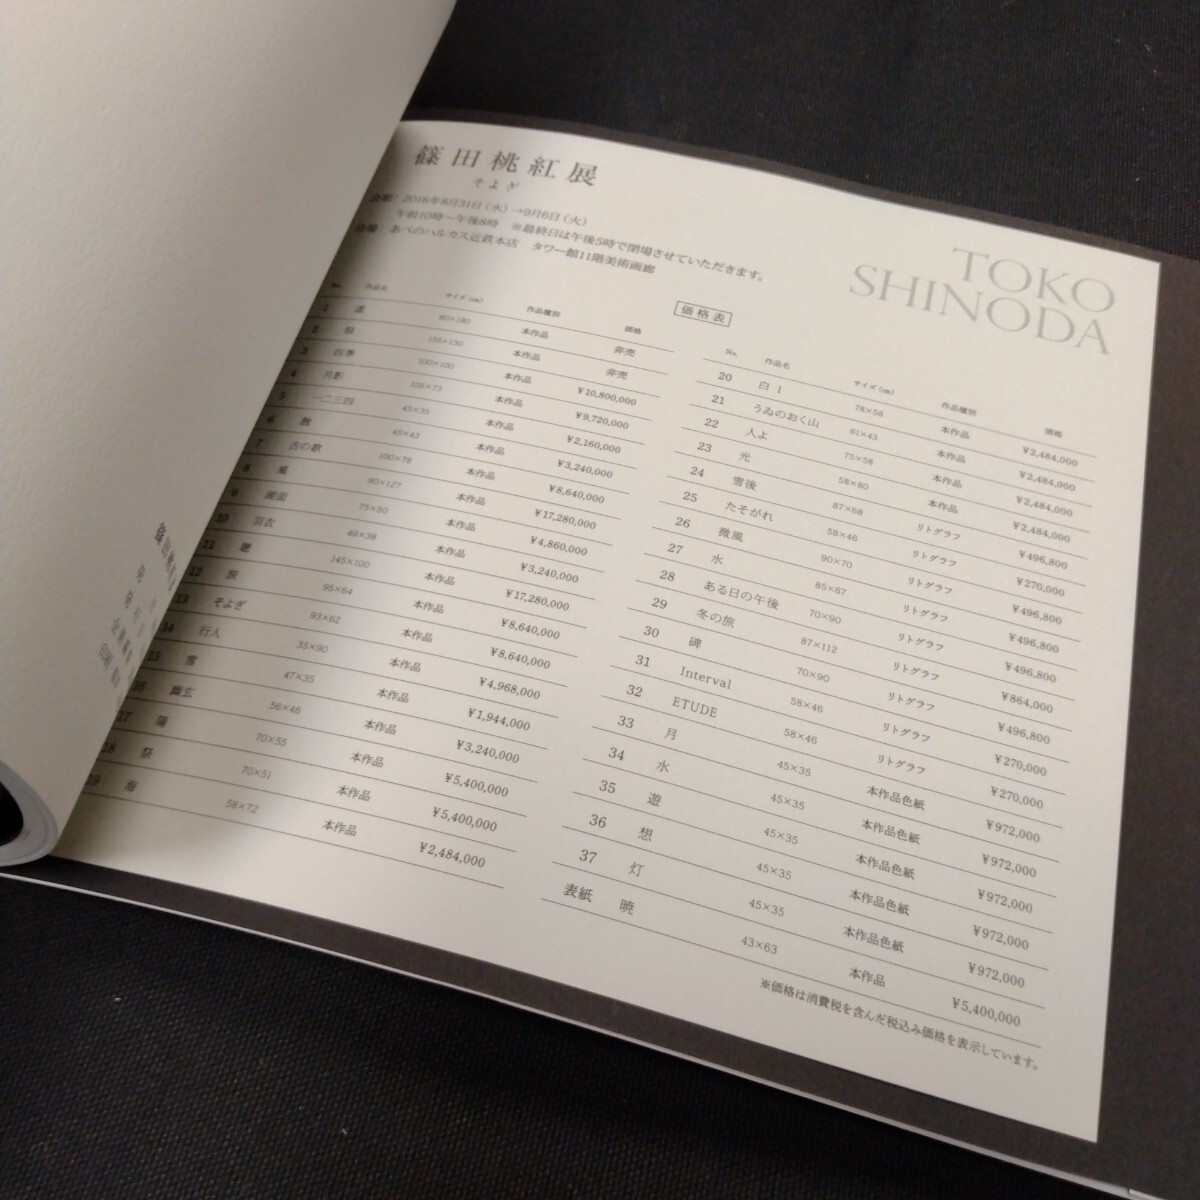 篠田桃紅展
そよぎ
会期：2016年8月31日（水）→9月6日（火）
午前10時～午後8時　※最終日は午後5時で閉場させていただきます。
会場：あべのハルカス近鉄本店　タワー館11階美術画廊
TOKO
SHINODA
価格表
No. 作品名 サイズ（㎝） 作品種別 価格
1 道 80×180 本作品 非売
2 155×130 本作品 非売
3 四季 100×100 本作品 ¥10,800,000
4 月影 105×73 本作品 ¥9,720,000
5 一二三四 45×35 本作品 ¥2,160,000
6 45×43 本作品 ¥3,240,000
7 古の歌 100×78 本作品 ¥8,640,000
8 風 90×127 本作品 ¥17,280,000
9 75×50 本作品 ¥4,860,000
10 羽衣 49×38 本作品 ¥3,240,000
11 聴 145×100 本作品 ¥17,280,000
12 旅 95×64 本作品 ¥8,640,000
13 そよぎ 93×62 本作品 ¥8,640,000
14 行人 35×90 本作品 ¥4,968,000
15 雪 47×35 本作品 ¥1,944,000
16 幽玄 56×46 本作品 ¥3,240,000
17 陽 70×55 本作品 ¥5,400,000
18 祭 70×51 本作品 ¥5,400,000
19 梅 58×72 本作品 ¥2,484,000
No. 作品名 サイズ（㎝） 作品種別 価格
20 白 1 78×58 本作品 ¥2,484,000
21 うゐのおく山 61×43 本作品 ¥2,484,000
22 人よ 75×58 本作品 ¥2,484,000
23 光 58×80 本作品 ¥2,484,000
24 雪後 87×68 リトグラフ ¥496,800
25 たそがれ 58×46 リトグラフ ¥270,000
26 微風 90×70 リトグラフ ¥496,800
27 水 85×67 リトグラフ ¥496,800
28 ある日の午後 70×90 リトグラフ ¥496,800
29 冬の旅 87×112 リトグラフ ¥864,000
30 碑 70×90 リトグラフ ¥496,800
31 Interval 58×46 リトグラフ ¥270,000
32 ETUDE 58×46 リトグラフ ¥270,000
33 月 45×35 本作品色紙 ¥972,000
34 水 45×35 本作品色紙 ¥972,000
35 遊 45×35 本作品色紙 ¥972,000
36 想 45×35 本作品色紙 ¥972,000
37 灯 45×35 本作品色紙 ¥972,000
表紙 暁 43×63 本作品 ¥5,400,000
※価格は消費税を含んだ税込み価格を表示しています。